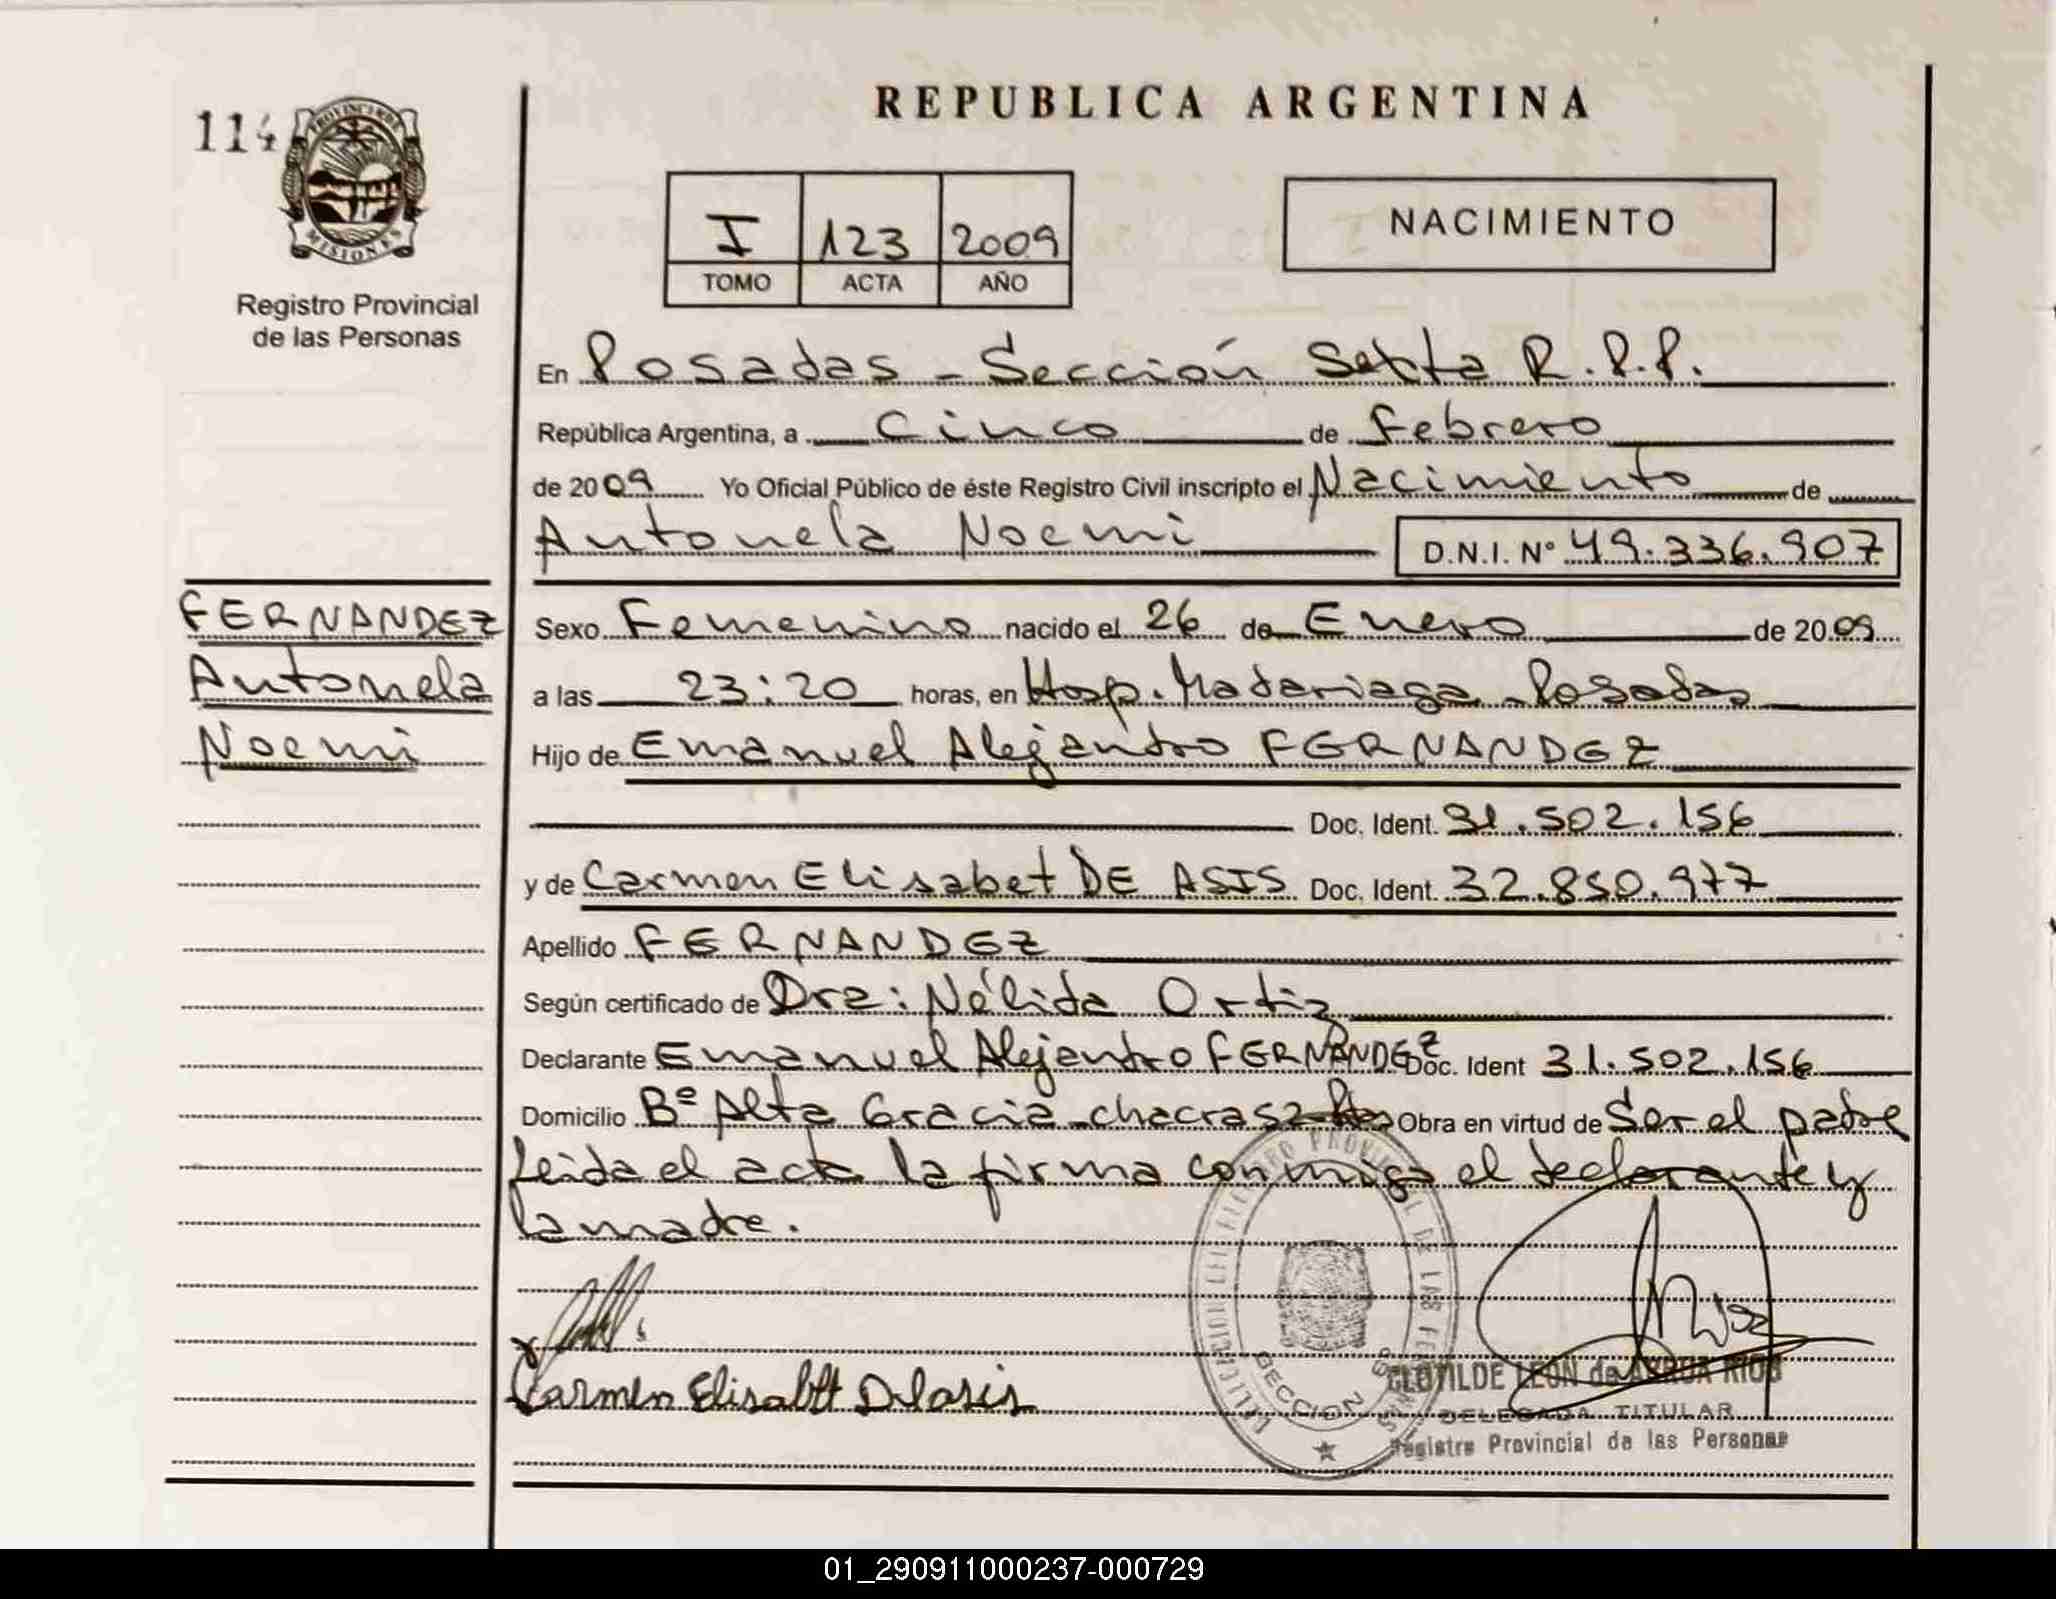 REPUBLICA ARGENTINA
114
PROVINCIA DE
MISIONES
Registro Provincial
de las Personas
I 123 2009
TOMO ACTA AÑO
NACIMIENTO
En Posadas - Sección Sexta R.P.P.
República Argentina, a Cinco de Febrero
de 2009 Yo Oficial Público de éste Registro Civil inscripto el Nacimiento de
Antonela Noemi D.N.I. Nº 49.336.907
FERNANDEZ
Antonela
Noemi
Sexo Femenino nacido el 26 de Enero de 2009
a las 23:20 horas, en Hosp. Madariaga - Posadas
Hijo de Emanuel Alejandro FERNANDEZ
Doc. Ident. 31.502.156
y de Carmen Elisabet DE ASIS Doc. Ident. 32.850.977
Apellido FERNANDEZ
Según certificado de Dra: Nélida Ortiz
Declarante Emanuel Alejandro FERNANDEZ Doc. Ident 31.502.156
Domicilio Bº Alta Gracia - chacras Obra en virtud de Ser el padre
Leida el acta la firma conmigo el declarante y
la madre.
Carmen Elisabtt D asis
REGISTRO PROVINCIAL DE LAS PERSONAS
SECCION
CLOTILDE LEON de RIOS
DELEGADA TITULAR
Registro Provincial de las Personas
01_290911000237-000729